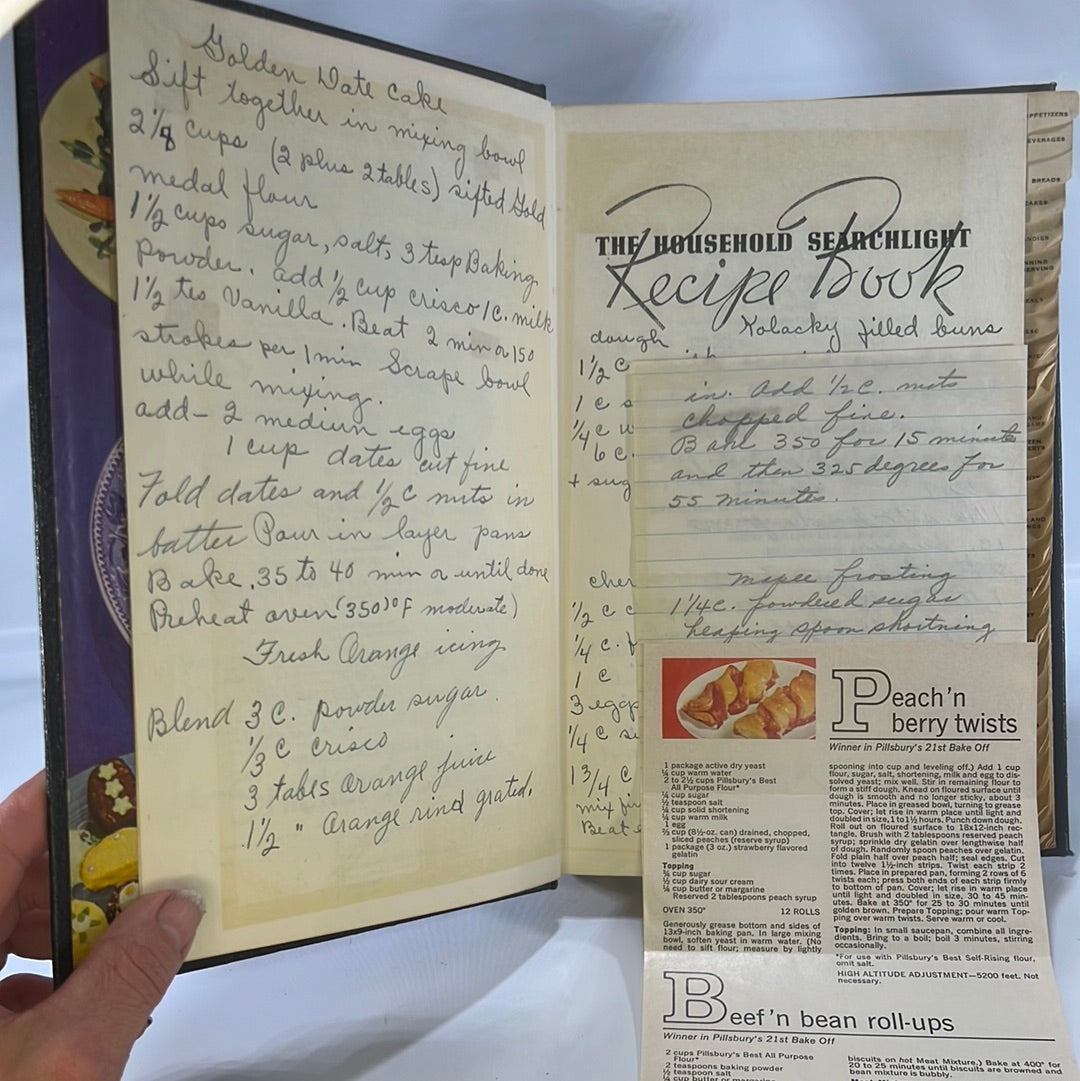 Golden Date Cake
Sift together in mixing bowl
2 1/8 cups (2 plus 2 tables) sifted Gold
medal flour
1 1/2 cups sugar, salt, 3 tesp Baking
Powder. add 1/2 cup crisco 1 c. milk
1 1/2 tes Vanilla. Beat 2 min or 150
strokes per 1 min Scrape bowl
while mixing.
add - 2 medium eggs
1 cup dates cut fine
Fold dates and 1/2 c nuts in
batter Pour in layer pans
Bake 35 to 40 min or until done
Preheat oven (350)°F moderate)
Fresh Orange icing
Blend 3 C. powder sugar.
1/3 C crisco
3 tabls Orange juice
1 1/2 " Orange rind grated.
THE HOUSEHOLD SEARCHLIGHT
Recipe Book
dough Kolacky filled buns
1 1/2 C
1 c s
1/4 c w
6 c.
+ sug
cher
1/2 c c
1/4 c. f
1 c
3 eggs
1/4 c su
1 3/4 c
mix fir
Beat
in. Add 1/2 C. nuts
chopped fine.
Bake 350 for 15 minute
and then 325 degrees for
55 minutes.
frosting
1 1/4 c. powdered sugar
heaping spoon shortning
Peach'n
berry twists
Winner in Pillsbury's 21st Bake Off
1 package active dry yeast
¼ cup warm water
2 to 2½ cups Pillsbury's Best
All Purpose Flour*
¼ cup sugar
½ teaspoon salt
¼ cup solid shortening
¼ cup warm milk
1 egg
⅔ cup (8½-oz. can) drained, chopped,
sliced peaches (reserve syrup)
1 package (3 oz.) strawberry flavored
gelatin
Topping
¾ cup sugar
½ cup dairy sour cream
¼ cup butter or margarine
Reserved 2 tablespoons peach syrup
OVEN 350° 12 ROLLS
Generously grease bottom and sides of
13x9-inch baking pan. In large mixing
bowl, soften yeast in warm water. (No
need to sift flour; measure by lightly
spooning into cup and leveling off.) Add 1 cup
flour, sugar, salt, shortening, milk and egg to dis-
solved yeast; mix well. Stir in remaining flour to
form a stiff dough. Knead on floured surface until
dough is smooth and no longer sticky, about 3
minutes. Place in greased bowl, turning to grease
top. Cover; let rise in warm place until light and
doubled in size, 1 to 1½ hours. Punch down dough.
Roll out on floured surface to 18x12-inch rec-
tangle. Brush with 2 tablespoons reserved peach
syrup; sprinkle dry gelatin over lengthwise half
of dough. Randomly spoon peaches over gelatin.
Fold plain half over peach half; seal edges. Cut
into twelve 1½-inch strips. Twist each strip 2
times. Place in prepared pan, forming 2 rows of 6
twists each; press both ends of each strip firmly
to bottom of pan. Cover; let rise in warm place
until light and doubled in size, 30 to 45 min-
utes. Bake at 350° for 25 to 30 minutes until
golden brown. Prepare Topping; pour warm Top-
ping over warm twists. Serve warm or cool.
Topping: In small saucepan, combine all ingre-
dients. Bring to a boil; boil 3 minutes, stirring
occasionally.
*For use with Pillsbury's Best Self-Rising flour,
omit salt.
HIGH ALTITUDE ADJUSTMENT—5200 feet. Not
necessary.
Beef'n bean roll-ups
Winner in Pillsbury's 21st Bake Off
2 cups Pillsbury's Best All Purpose
Flour*
2 teaspoons baking powder
½ teaspoon salt
¼ cup butter or margarine
biscuits on hot Meat Mixture.) Bake at 400° for
20 to 25 minutes until biscuits are browned and
bean mixture is bubbly.
APPETIZERS
BEVERAGES
BREADS